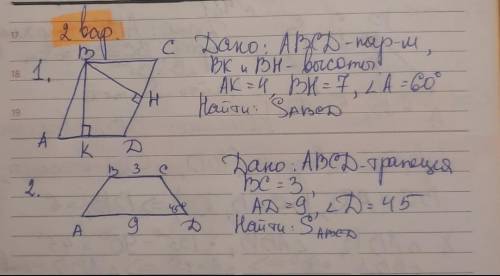 2 вар.
1.
B
C
H
A
K
D
Дано: ABCD-пар-м,
BK и BH-высоты
AK=4, BH=7, ∠A=60°
Найти: SABCD
2.
B 3 C
45°
A 9 D
Дано: ABCD-трапеция
BC=3,
AD=9, ∠D=45
Найти: SABCD
17
18
19